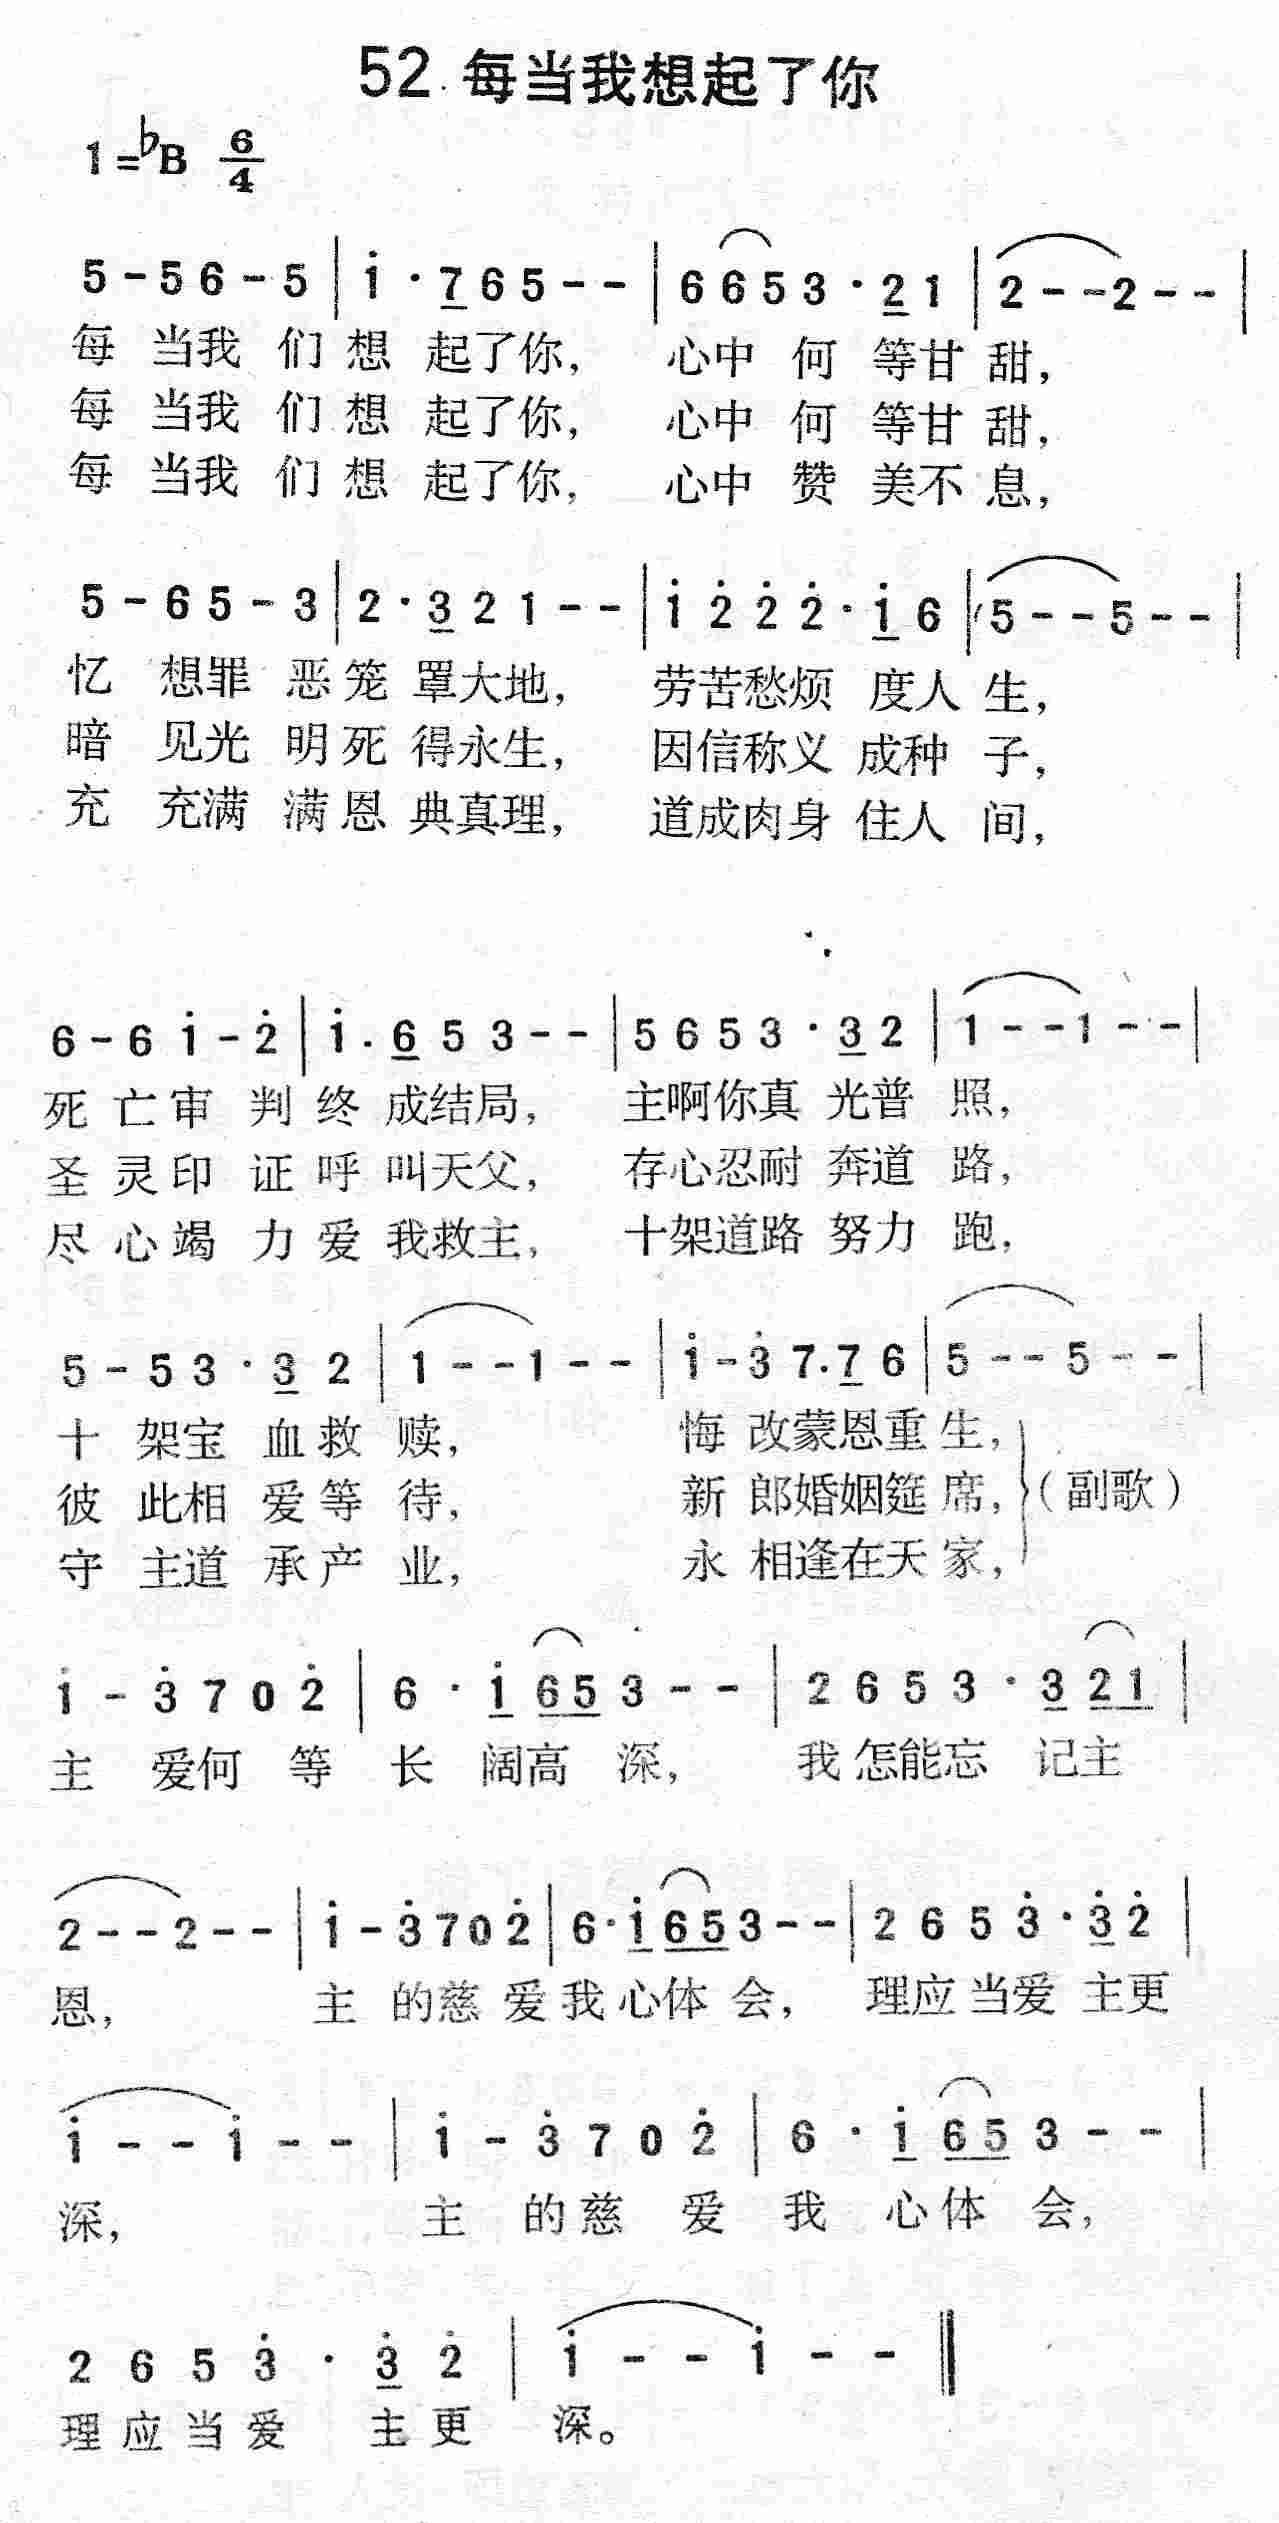 52. 每当我想起了你
1=♭B 6/4
5 - 5 6 - 5 | i · 7 6 5 - - | 6 6 5 3 · 2 1 | 2 - - 2 - - |
每 当我 们 想 起了你, 心中 何 等甘 甜,
每 当我 们 想 起了你, 心中 何 等甘 甜,
每 当我 们 想 起了你, 心中 赞 美不 息,
5 - 6 5 - 3 | 2 · 3 2 1 - - | i 2̇ 2̇ 2̇ · i 6 | 5 - - 5 - - |
忆 想罪 恶 笼 罩大地, 劳苦愁烦 度人 生,
暗 见光 明 死 得永生, 因信称义 成种 子,
充 充满 满 恩 典真理, 道成肉身 住人 间,
6 - 6 i - 2̇ | i · 6 5 3 - - | 5 6 5 3 · 3 2 | 1 - - 1 - - |
死 亡审 判 终 成结局, 主啊你真 光普 照,
圣 灵印 证 呼 叫天父, 存心忍耐 奔道 路,
尽 心竭 力 爱 我救主, 十架道路 努力 跑,
5 - 5 3 · 3 2 | 1 - - 1 - - | i - 3̇ 7 · 7 6 | 5 - - 5 - - |
十 架宝 血救 赎, 悔 改蒙恩重 生,
彼 此相 爱等 待, 新 郎婚姻筵 席, (副歌)
守 主道 承产 业, 永 相逢在天 家,
i - 3̇ 7 0 2̇ | 6 · i 6 5 3 - - | 2 6 5 3 · 3 2 1 |
主 爱何 等 长 阔高 深, 我怎能忘 记主
2 - - 2 - - | i - 3̇ 7 0 2̇ | 6 · i 6 5 3 - - | 2 6 5 3̇ · 3̇ 2̇ |
恩, 主 的慈 爱 我心体 会, 理应当爱 主更
i - - i - - | i - 3̇ 7 0 2̇ | 6 · i 6 5 3 - - |
深, 主 的慈 爱 我 心体 会,
2 6 5 3̇ · 3̇ 2̇ | i - - i - - ‖
理应当爱 主更 深。